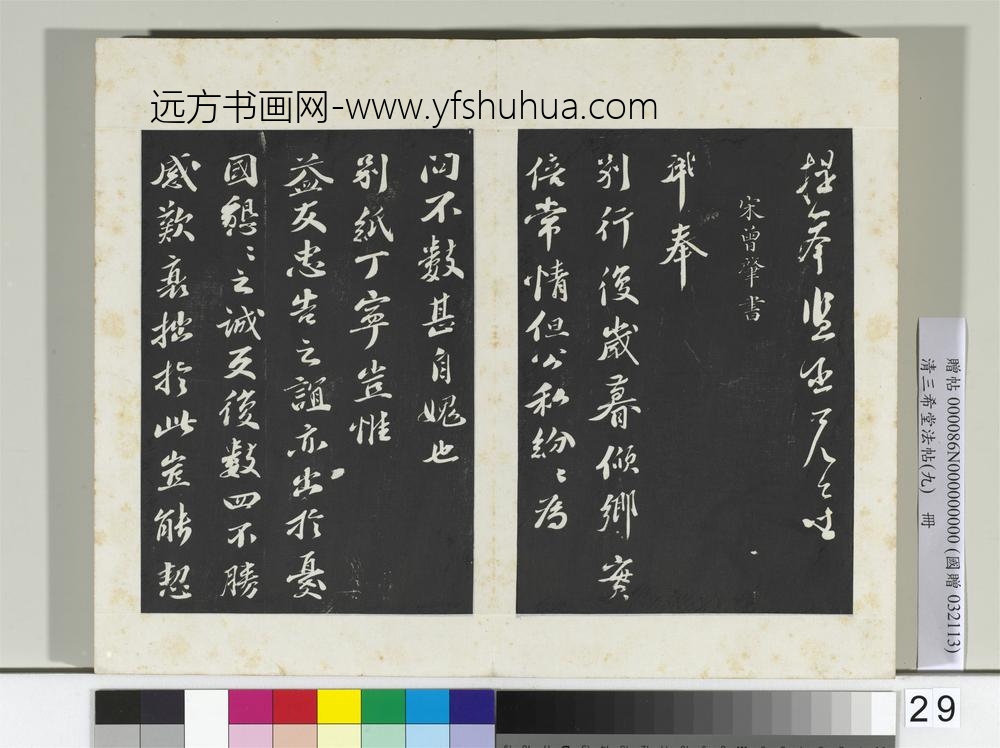 远方书画网-www.yfshuhua.com
提舉監丞
宋曾肇書
肇奉
別行後歲暮傾鄉實
倍常情但公私紛〻為
問不數甚自媿也
別紙丁寧豈惟
益友忠告之誼亦出於憂
國懇〻之誠反復數四不勝
感歎衰拙於此豈能恝
贈帖 000086N000000000 (國贈 032113)
清三希堂法帖(九) 冊
29